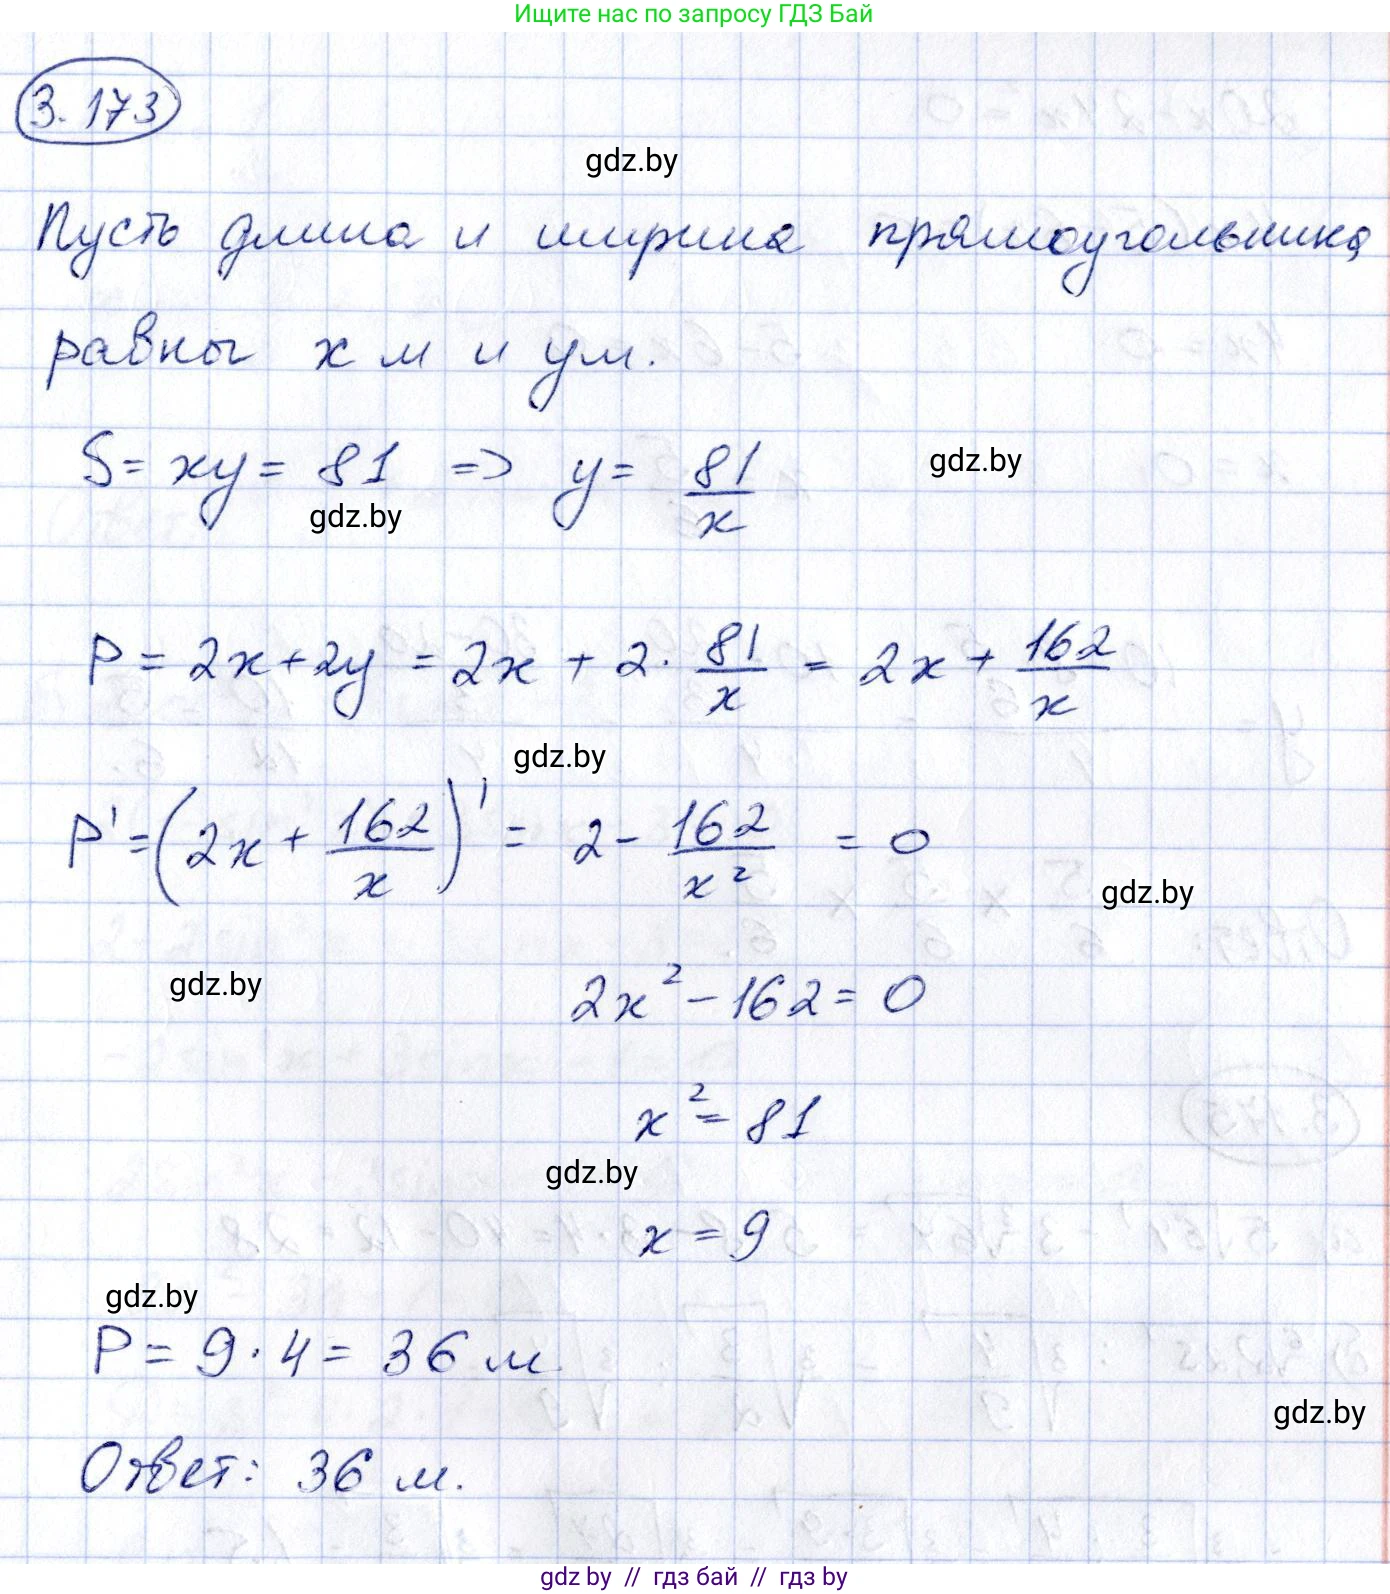 Ищите нас по запросу ГДЗ Бай
3.173
gdz.by
Пусть длина и ширина прямоугольника
равны x м и y м.
S = xy = 81 => y = 81/x
gdz.by
gdz.by
P = 2x + 2y = 2x + 2 · 81/x = 2x + 162/x
gdz.by
P' = (2x + 162/x)' = 2 - 162/x² = 0
gdz.by
gdz.by
2x² - 162 = 0
x² = 81
gdz.by
x = 9
gdz.by
P = 9 · 4 = 36 м
gdz.by
Ответ: 36 м.
gdz.by // гдз бай // гдз by